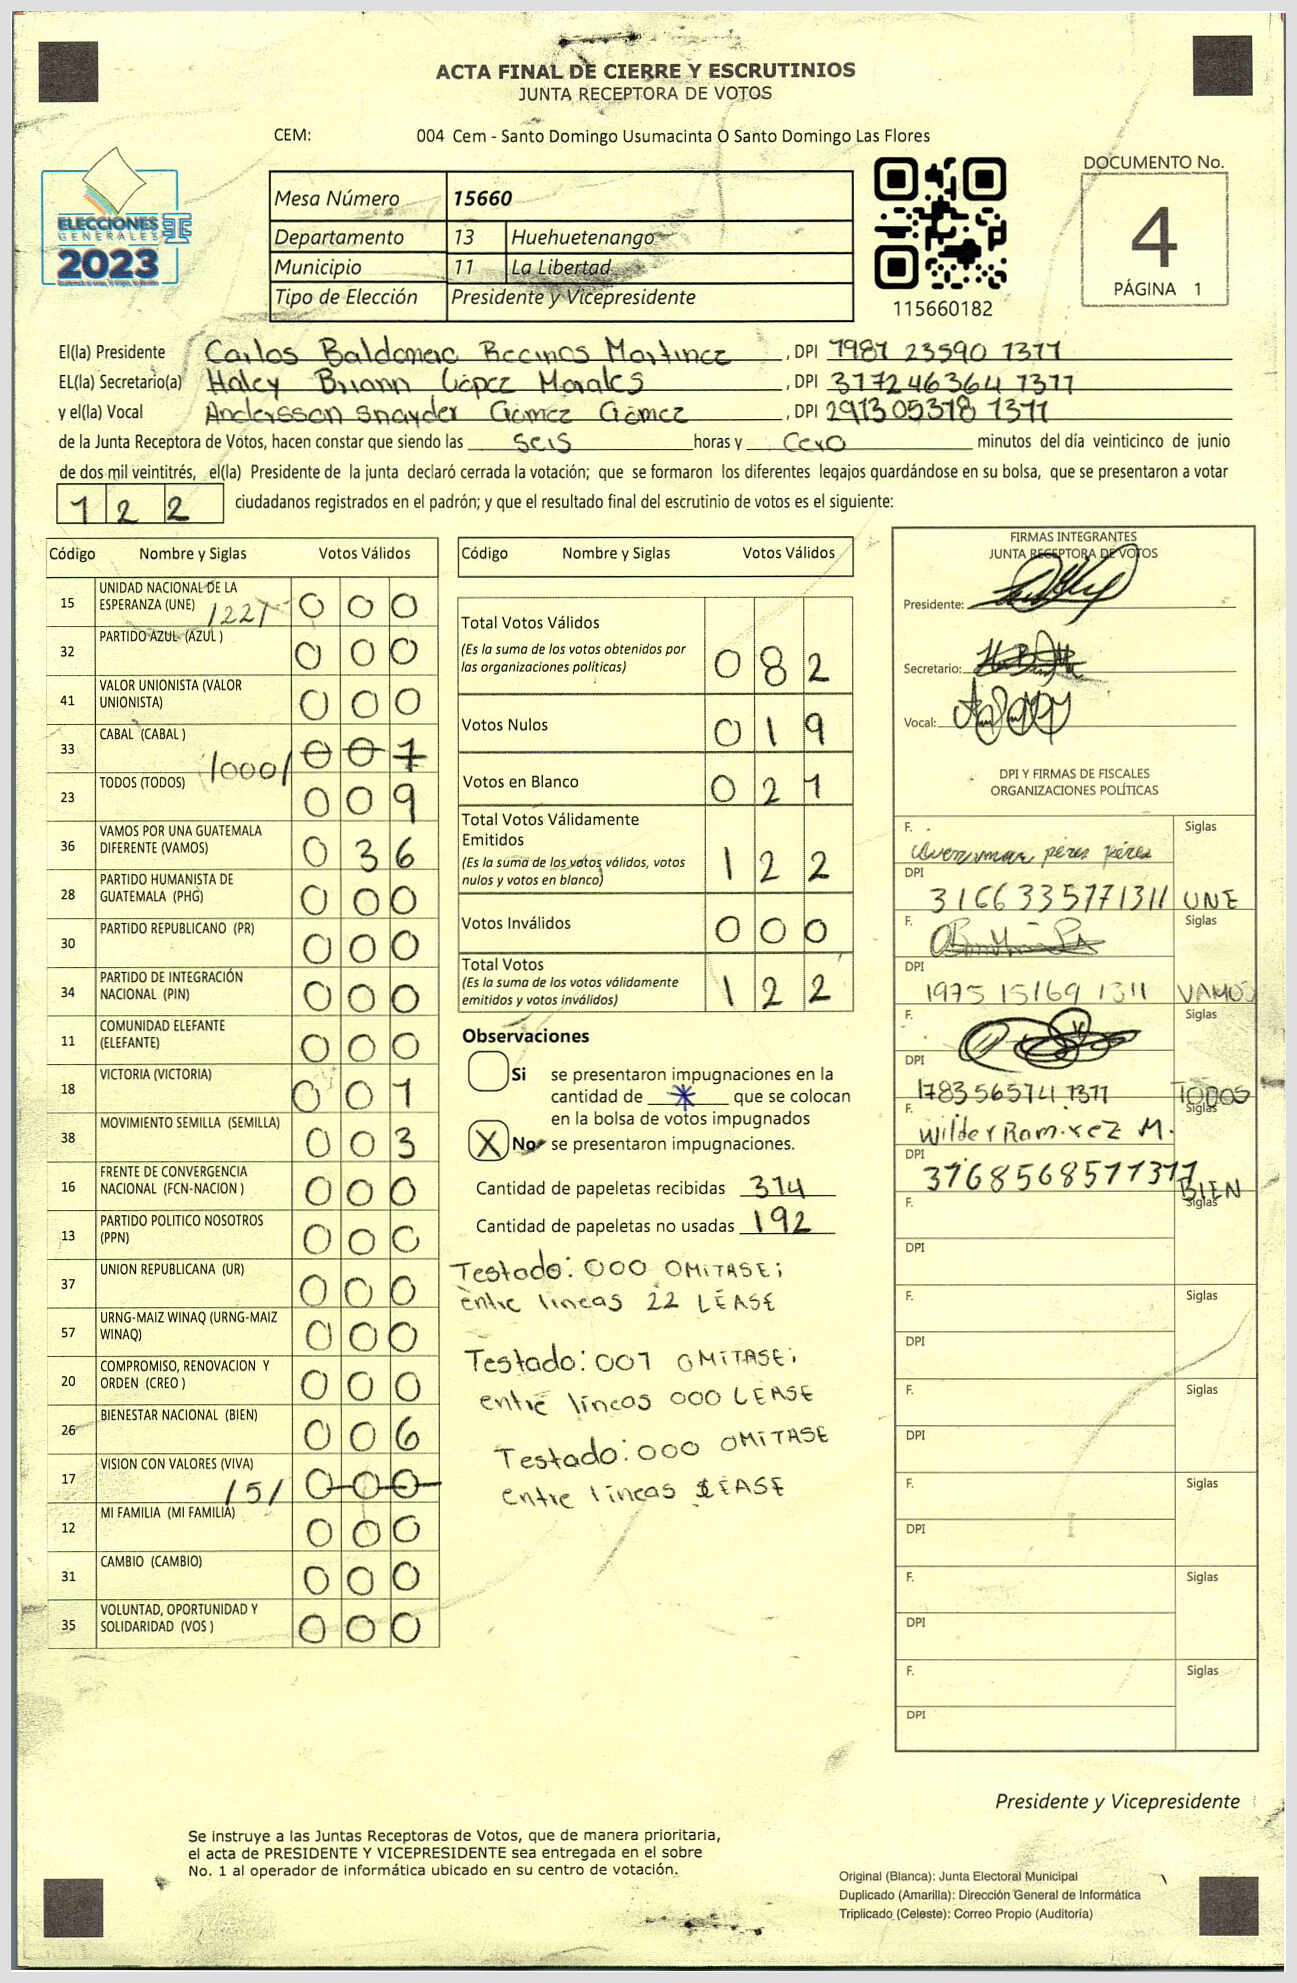 ACTA FINAL DE CIERRE Y ESCRUTINIOS
JUNTA RECEPTORA DE VOTOS
CEM: 004 Cem - Santo Domingo Usumacinta O Santo Domingo Las Flores
ELECCIONES
GENERALES
2023
Mesa Número 15660
Departamento 13 Huehuetenango
Municipio 11 La Libertad
Tipo de Elección Presidente y Vicepresidente
115660182
DOCUMENTO No.
4
PÁGINA 1
El(la) Presidente Carlos Baldomero Recinos Martinez, DPI 1987 23590 1311
EL(la) Secretario(a) Haley Briann López Morales, DPI 317246364 1311
y el(la) Vocal Andersson Snayder Gómez Gómez, DPI 2913 05378 1311
de la Junta Receptora de Votos, hacen constar que siendo las seis horas y cero minutos del día veinticinco de junio
de dos mil veintitrés, el(la) Presidente de la junta declaró cerrada la votación; que se formaron los diferentes legajos quardándose en su bolsa, que se presentaron a votar
122 ciudadanos registrados en el padrón; y que el resultado final del escrutinio de votos es el siguiente:
Código Nombre y Siglas Votos Válidos
15 UNIDAD NACIONAL DE LA
ESPERANZA (UNE) /22/ 000
32 PARTIDO AZUL (AZUL ) 000
41 VALOR UNIONISTA (VALOR
UNIONISTA) 000
33 CABAL (CABAL ) /000/ 001
23 TODOS (TODOS) 009
36 VAMOS POR UNA GUATEMALA
DIFERENTE (VAMOS) 036
28 PARTIDO HUMANISTA DE
GUATEMALA (PHG) 000
30 PARTIDO REPUBLICANO (PR) 000
34 PARTIDO DE INTEGRACIÓN
NACIONAL (PIN) 000
11 COMUNIDAD ELEFANTE
(ELEFANTE) 000
18 VICTORIA (VICTORIA) 001
38 MOVIMIENTO SEMILLA (SEMILLA) 003
16 FRENTE DE CONVERGENCIA
NACIONAL (FCN-NACION ) 000
13 PARTIDO POLITICO NOSOTROS
(PPN) 000
37 UNION REPUBLICANA (UR) 000
57 URNG-MAIZ WINAQ (URNG-MAIZ
WINAQ) 000
20 COMPROMISO, RENOVACION Y
ORDEN (CREO ) 000
26 BIENESTAR NACIONAL (BIEN) 006
17 VISION CON VALORES (VIVA) /5/ 000
12 MI FAMILIA (MI FAMILIA) 000
31 CAMBIO (CAMBIO) 000
35 VOLUNTAD, OPORTUNIDAD Y
SOLIDARIDAD (VOS ) 000
Código Nombre y Siglas Votos Válidos
Total Votos Válidos
(Es la suma de los votos obtenidos por
las organizaciones políticas) 082
Votos Nulos 019
Votos en Blanco 021
Total Votos Válidamente
Emitidos
(Es la suma de los votos válidos, votos
nulos y votos en blanco) 122
Votos Inválidos 000
Total Votos
(Es la suma de los votos válidamente
emitidos y votos inválidos) 122
Observaciones
Si se presentaron impugnaciones en la
cantidad de que se colocan
en la bolsa de votos impugnados
X No se presentaron impugnaciones.
Cantidad de papeletas recibidas 314
Cantidad de papeletas no usadas 192
Testado: 000 OMITASE;
entre lineas 22 LEASE
Testado: 001 OMITASE;
entre líneas 000 LEASE
Testado: 000 OMITASE
entre lineas LEASE
FIRMAS INTEGRANTES
JUNTA RECEPTORA DE VOTOS
Presidente:
Secretario:
Vocal:
DPI Y FIRMAS DE FISCALES
ORGANIZACIONES POLÍTICAS
F. pérez pérez Siglas
DPI 3166 33577 1311 UNE
F. Siglas
DPI 1975 15169 1311 VAMOS
F. Siglas
DPI 1783 56574 1311 TODOS
F. Wilder Ramirez M. Siglas
DPI 3768568571311 BIEN
F. Siglas
DPI
F. Siglas
DPI
F. Siglas
DPI
F. Siglas
DPI
F. Siglas
DPI
F. Siglas
DPI
Presidente y Vicepresidente
Se instruye a las Juntas Receptoras de Votos, que de manera prioritaria,
el acta de PRESIDENTE Y VICEPRESIDENTE sea entregada en el sobre
No. 1 al operador de informática ubicado en su centro de votación.
Original (Blanca): Junta Electoral Municipal
Duplicado (Amarilla): Dirección General de Informática
Triplicado (Celeste): Correo Propio (Auditoría)